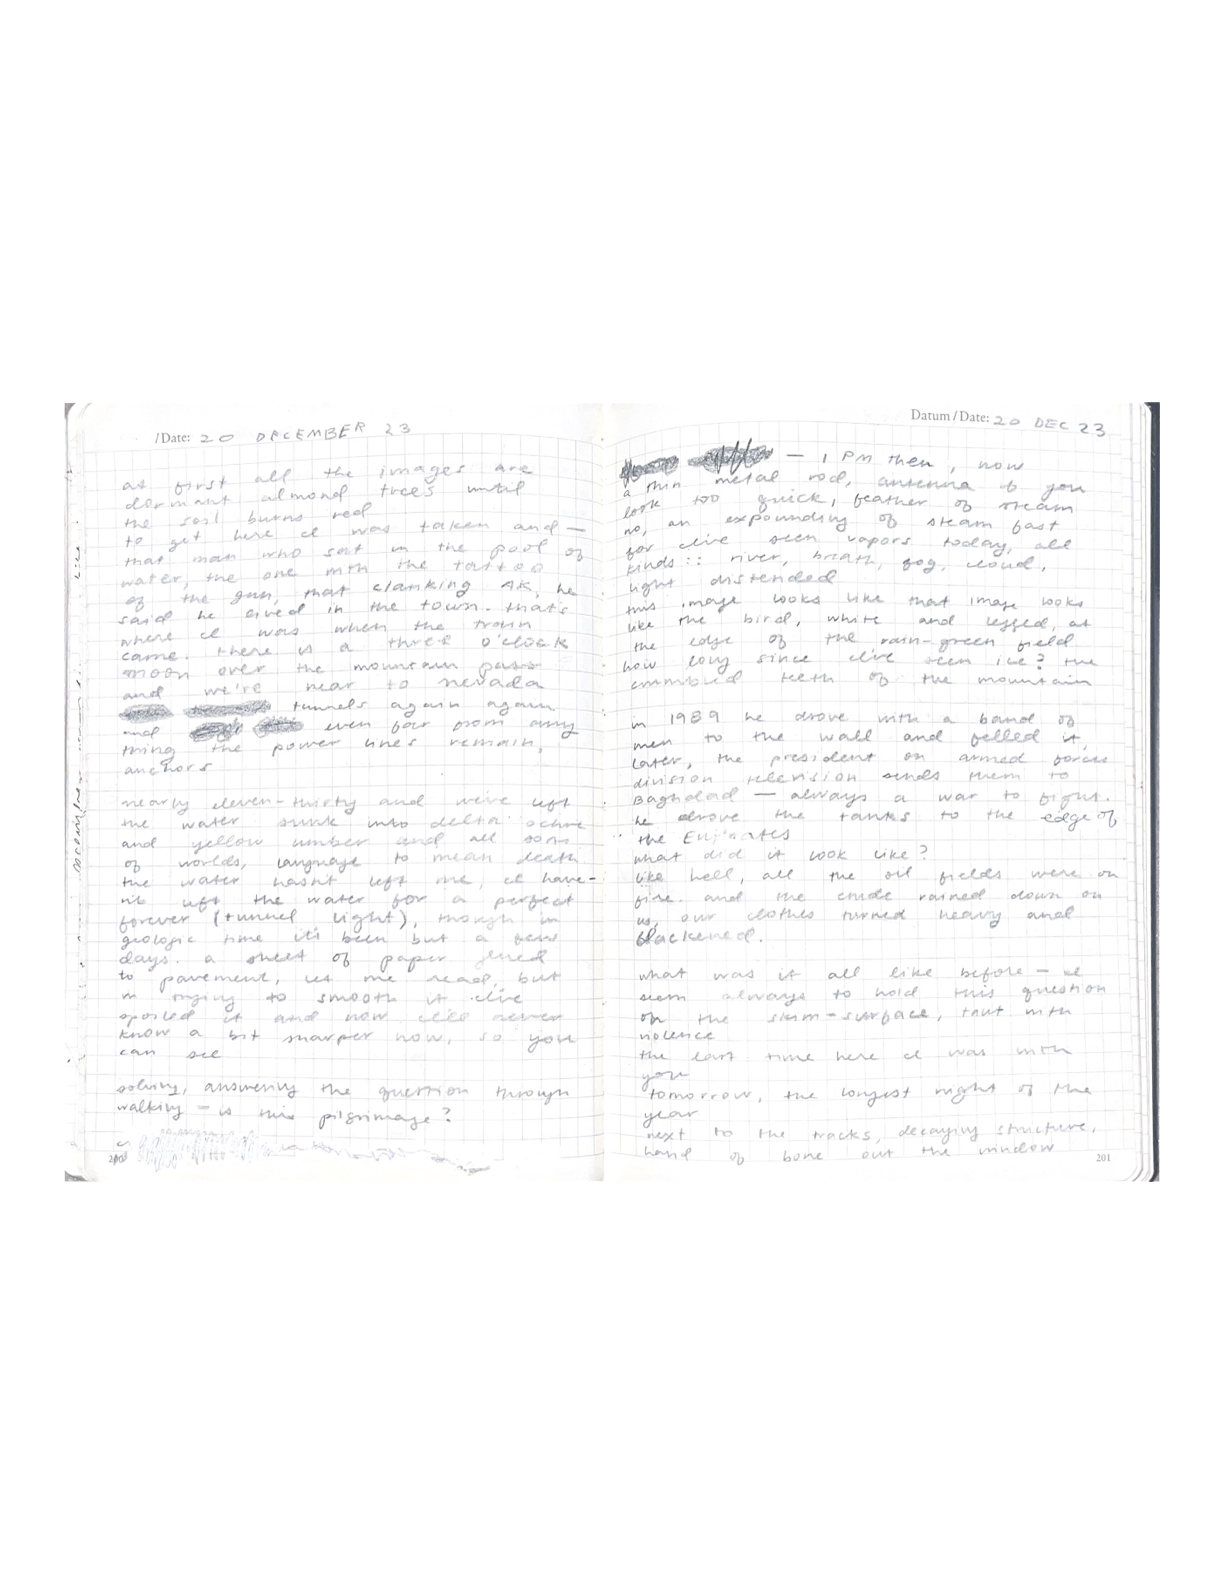 /Date: 20 DECEMBER 23
at first all the images are
dormant almond trees until
the soil burns red
to get here I was taken and —
that man who sat in the pool of
water, the one with the tattoo
of the gun, that clanking AK, he
said he lived in the town. that's
where I was when the train
came. there is a three o'clock
moon over the mountain pass
and we're near to nevada
tunnels again again
and even far from any
thing the power lines remain,
anchors
nearly eleven-thirty and we've left
the water sunk into delta ochre
and yellow umber and all
of worlds, language to mean death
the water hasn't left me, I have-
n't left the water for a perfect
forever (tunnel light), though in
geologic time it's been but a few
days. a sheet of paper glued
to pavement, let me read, but
in trying to smooth it I've
spoiled it and now I'll never
know a bit sharper now, so you
can see
solving, answering the question through
walking — is this pilgrimage?
200
Datum/Date: 20 DEC 23
— 1 PM then, now
a thin metal rod, antenna if you
look too quick, feather of steam
no, an expounding of steam fast
for I've seen vapors today, all
kinds :: river, breath, fog, cloud,
light distended
this image looks like that image looks
like the bird, white and legged, at
the edge of the rain-green field
how long since I've seen ice? the
crumbled teeth of the mountain
in 1989 he drove with a band of
men to the wall and felled it,
later, the president on armed forces
division television sends them to
Baghdad — always a war to fight.
he drove the tanks to the edge of
the Euphrates
what did it look like?
like hell, all the oil fields were on
fire. and the crude rained down on
us, our clothes turned heavy and
blackened.
what was it all like before — I
seem always to hold this question
on the skim-surface, taut with
violence
the last time here I was with
you
tomorrow, the longest night of the
year
next to the tracks, decaying structure,
hand of bone out the window
201